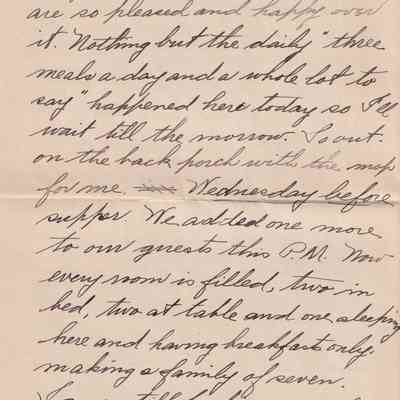 are so pleased and happy over
it. Nothing but the daily "three
meals a day and a whole lot to
say" happened here today so I'll
wait till the morrow. So out-
on the back porch with the mop
for me Wednesday before
supper We added one more
to our guests this P.M. Now
every room is filled, two in
bed, two at table and one sleeping
here and having breakfasts only.
making a family of seven.